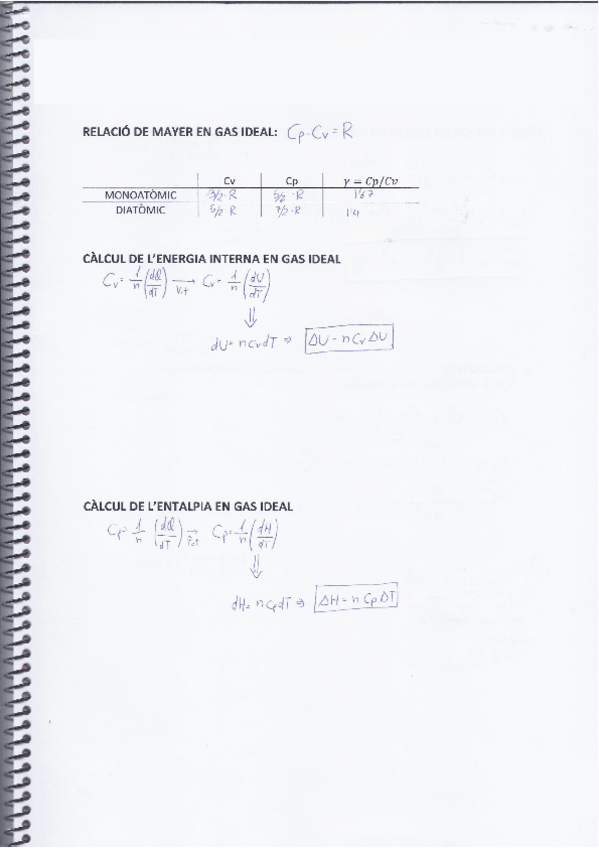 RELACIÓ DE MAYER EN GAS IDEAL: Cp-Cv=R
Cv Cp γ = Cp/Cv
MONOATÒMIC 3/2·R 5/2·R 1'67
DIATÒMIC 5/2·R 7/2·R 1'4
CÀLCUL DE L'ENERGIA INTERNA EN GAS IDEAL
Cv= 1/n (dQ/dT) → Cv= 1/n (dU/dT)
⇓
dU= nCvdT ⇒ ΔU = nCvΔU
CÀLCUL DE L'ENTALPIA EN GAS IDEAL
Cp= 1/n (dQ/dT) → Cp= 1/n (dH/dT)
⇓
dH= nCpdT ⇒ ΔH= nCpΔT